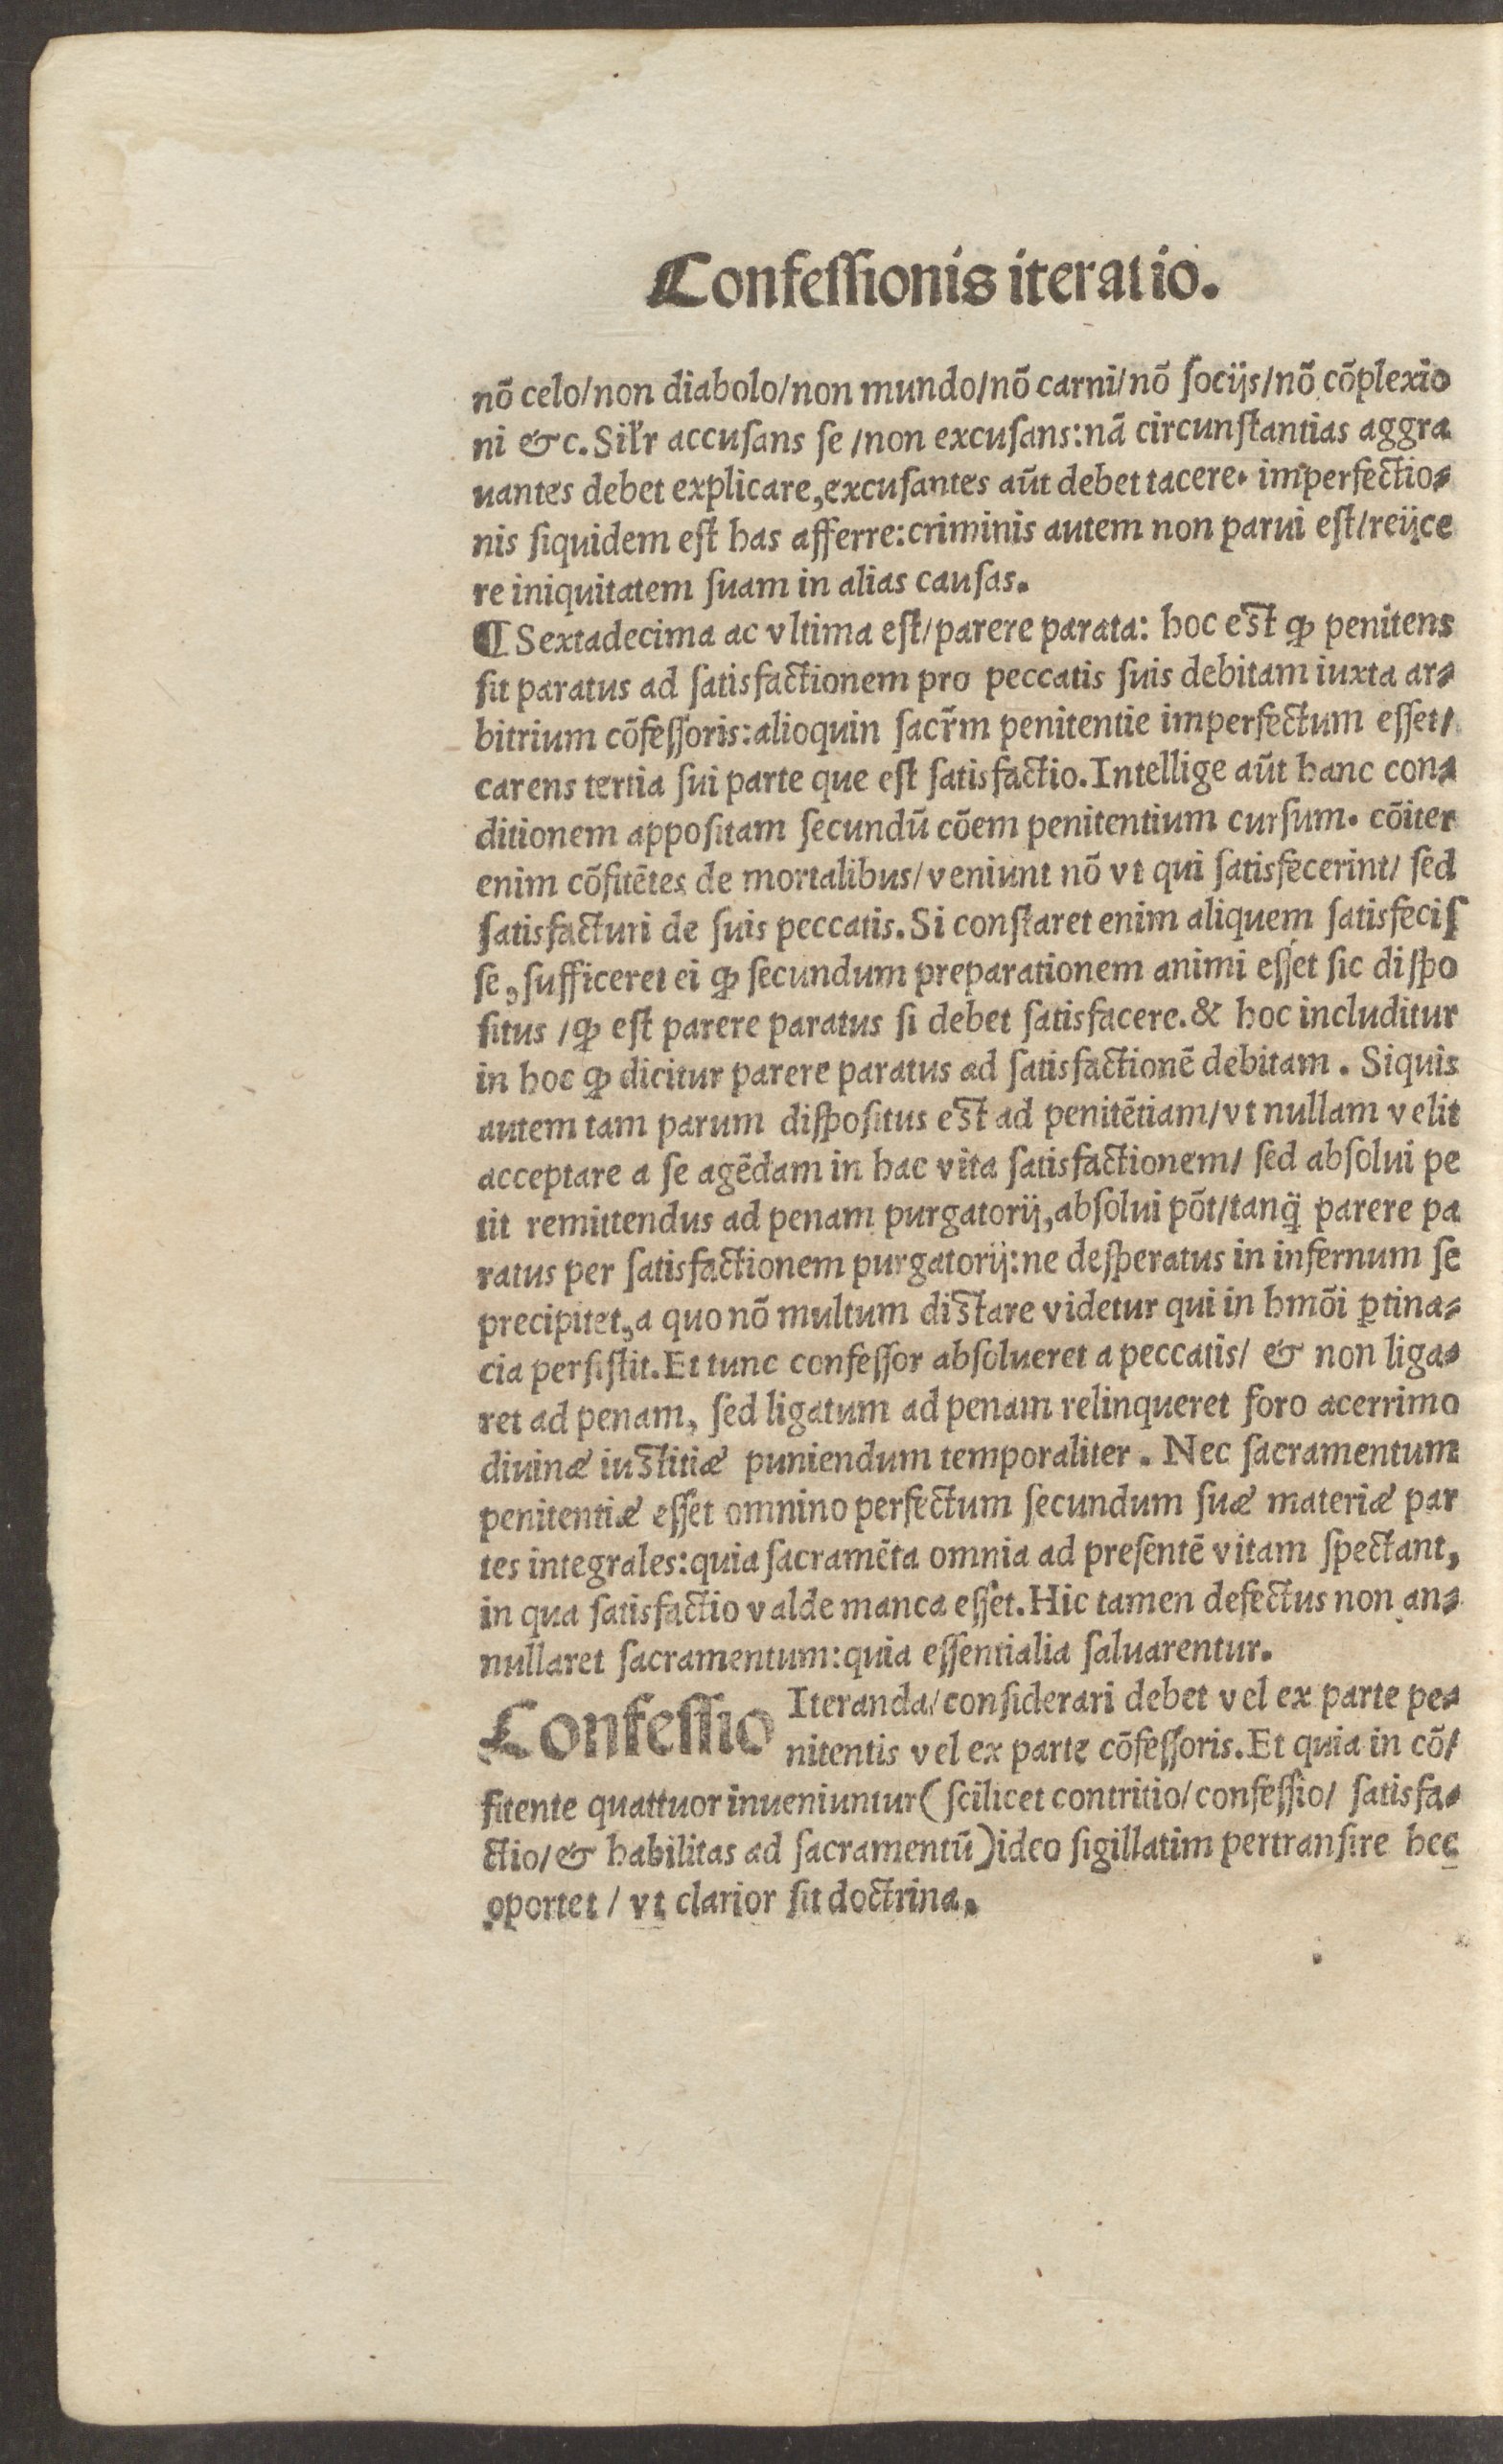 Confeſſionis iteratio.
nõ celo/non diabolo/non mundo/nõ carni/nõ ſocijs/nõ cõplexio
ni &c. Sil'r accuſans ſe /non excuſans: nã circunſtantias aggra
uantes debet explicare, excuſantes aũt debet tacere. imperfectio⸗
nis ſiquidem eſt has afferre: criminis autem non parui eſt/reijce
re iniquitatem ſuam in alias cauſas.
¶ Sextadecima ac vltima eſt/parere parata: hoc eſt ꝙ penitens
ſit paratus ad ſatisfactionem pro peccatis ſuis debitam iuxta ar⸗
bitrium cõfeſſoris: alioquin ſacr̃m penitentie imperfectum eſſet/
carens tertia ſui parte que eſt ſatisfactio. Intellige aũt hanc con⸗
ditionem appoſitam ſecundũ cõem penitentium curſum. cõiter
enim cõfitẽtes de mortalibus/veniunt nõ vt qui ſatisfecerint/ ſed
ſatisfacturi de ſuis peccatis. Si conſtaret enim aliquem ſatisfeciſ
ſe, ſufficeret ei ꝙ ſecundum preparationem animi eſſet ſic diſpo
ſitus /ꝙ eſt parere paratus ſi debet ſatisfacere. & hoc includitur
in hoc ꝙ dicitur parere paratus ad ſatisfactionẽ debitam. Siquis
autem tam parum diſpoſitus eſt ad penitẽtiam/vt nullam velit
acceptare a ſe agẽdam in hac vita ſatisfactionem/ ſed abſolui pe
tit remittendus ad penam purgatorij, abſolui põt/tanq̃ parere pa
ratus per ſatisfactionem purgatorij: ne deſperatus in infernum ſe
precipitet, a quo nõ multum diſtare videtur qui in hmõi ꝑtina⸗
cia perſiſtit. Et tunc confeſſor abſolueret a peccatis/ & non liga⸗
ret ad penam, ſed ligatum ad penam relinqueret foro acerrimo
diuinæ iuſtitiæ puniendum temporaliter. Nec ſacramentum
penitentiæ eſſet omnino perfectum ſecundum ſuæ materiæ par
tes integrales: quia ſacramẽta omnia ad preſentẽ vitam ſpectant,
in qua ſatisfactio valde manca eſſet. Hic tamen defectus non an⸗
nullaret ſacramentum: quia eſſentialia ſaluarentur.
Confeſſio Iteranda/conſiderari debet vel ex parte pe⸗
nitentis vel ex parte cõfeſſoris. Et quia in cõ/
fitente quattuor inueniuntur (ſcilicet contritio/confeſſio/ ſatisfa⸗
ctio/& habilitas ad ſacramentũ) ideo ſigillatim pertranſire hec
oportet / vt clarior ſit doctrina.